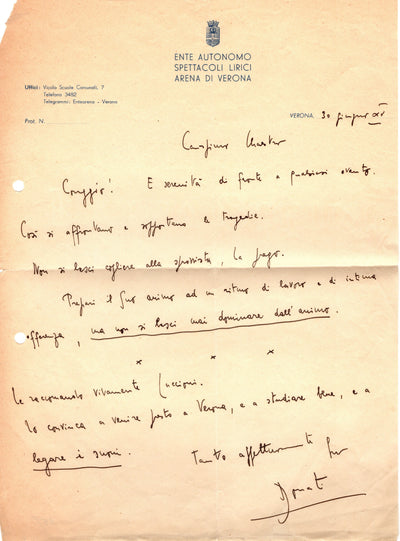 ENTE AUTONOMO
SPETTACOLI LIRICI
ARENA DI VERONA
Uffici: Vicolo Scuole Comunali, 7
Telefono 3482
Telegrammi: Entearena - Verona
Prot. N.
VERONA, 30 giugno XV
Carissimo Maestro
Coraggio! E serenità di fronte a qualsiasi evento.
Così si affrontano e sopportano le tragedie.
Non si lasci cogliere alla sprovvista, la prego.
Prepari il Suo animo ad un ritmo di lavoro e di intima
sofferenza, ma non si lasci mai dominare dall'animo.
x x x
Le raccomando vivamente
Lo convinca a venire presto a Verona, e a studiare bene, e a
legare i suoni.
Tanto affettuosamente Suo
Donati